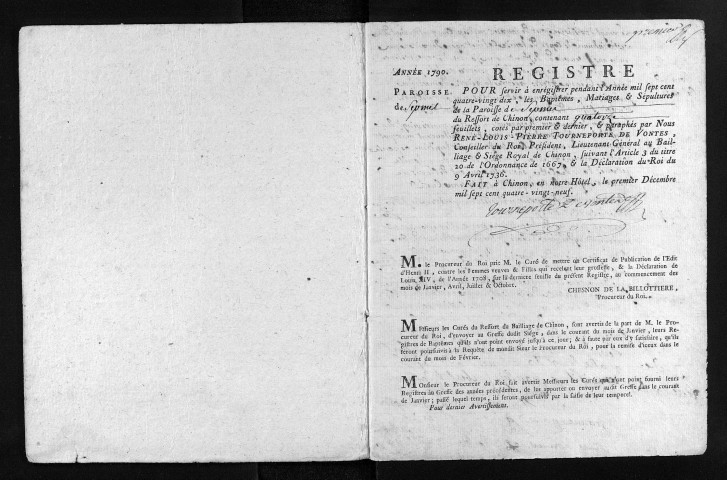 premier
ANNÉE 1790.
REGISTRE
PAROISSE
de Sepmes
POUR servir à enrégistrer pendant l'Année mil sept cent
quatre-vingt dix, les Baptêmes, Mariages & Sépultures
de la Paroisse de Sepmes
du Ressort de Chinon, contenant quatorze
feuillets, cotés par premier & dernier, & paraphés par Nous
RENÉ-LOUIS-PIERRE TOURNEPORTE DE VONTES,
Conseiller du Roi, Président, Lieutenant Général au Bail-
liage & Siége Royal de Chinon, suivant l'Article 3 du titre
20 de l'Ordonnance de 1667, & la Déclaration du Roi du
9 Avril 1736.
FAIT à Chinon, en notre Hôtel, le premier Décembre
mil sept cent quatre-vingt-neuf.
Tourneporte De Vontes
M. le Procureur du Roi prie M. le Curé de mettre un Certificat de Publication de l'Edit
d'Henri II, contre les Femmes veuves & Filles qui recelent leur grossesse, & la Déclaration de
Louis XIV, de l'Année 1708, sur la derniere feuille du présent Registre, au commencement des
mois de Janvier, Avril, Juillet & Octobre.
CHESNON DE LA BILLOTTIERE,
Procureur du Roi.
Messieurs les Curés du Ressort du Bailliage de Chinon, sont avertis de la part de M. le Pro-
cureur du Roi, d'envoyer au Greffe dudit Siége, dans le courant du mois de Janvier, leurs Re-
gistres de Baptêmes qu'ils n'ont point envoyé jusqu'à ce jour; & à faute par eux d'y satisfaire, qu'ils
seront poursuivis à la Requête de mondit Sieur le Procureur du Roi, pour la remise d'iceux dans le
courant du mois de Février.
Monsieur le Procureur du Roi fait avertir Messieurs les Curés qui n'ont point fourni leurs
Registres au Greffe des années précédentes, de les apporter ou envoyer audit Greffe dans le courant
de Janvier; passé lequel temps, ils seront poursuivis par la saisie de leur temporel.
Pour dernier Avertissement.